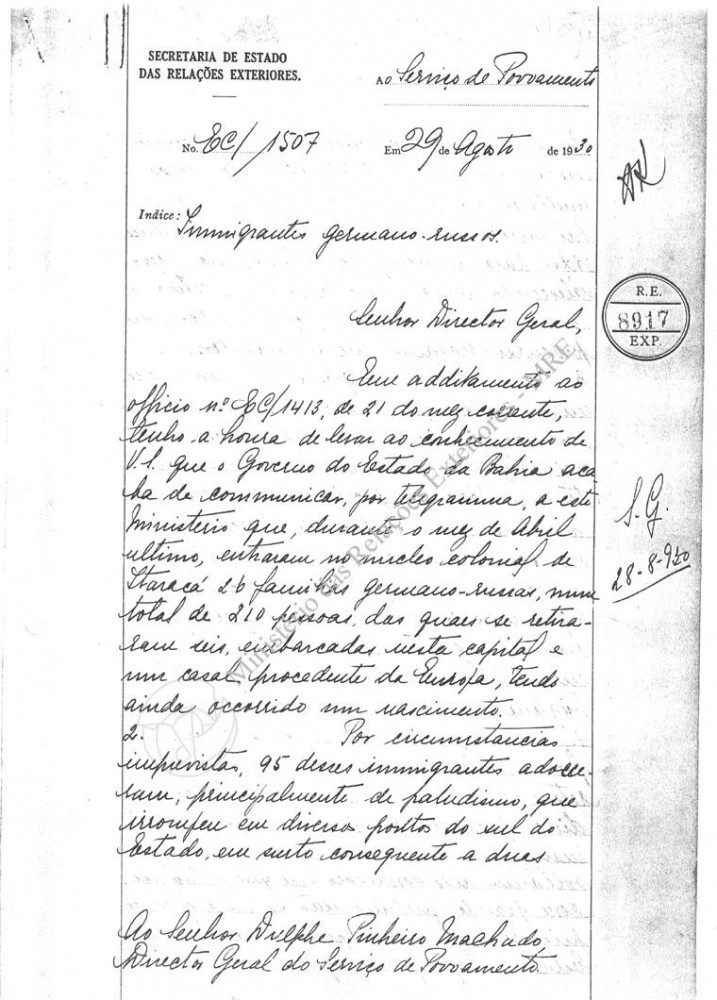 SECRETARIA DE ESTADO
DAS RELAÇÕES EXTERIORES.
AO Serviço de Povoamento
No. EC/1507
Em 29 de Agosto de 1930
Indice: Immigrantes germano-russos.
R.E.
8917
EXP.
Senhor Director Geral,
Em additamento ao
officio nº EC/1413, de 21 do mez corrente,
tenho a honra de levar ao conhecimento de
V.S. que o Governo do Estado da Bahia aca-
ba de communicar, por telegramma, a este
Ministerio que, durante o mez de Abril
ultimo, entraram no nucleo colonial de
Itaracá 26 familias germano-russas, num
total de 210 pessoas, das quaes se retira-
ram seis, embarcadas nesta capital e
um casal, procedente da Europa, tendo
ainda occorrido um nascimento.
2. Por circumstancias
imprevistas, 95 desses immigrantes adoece-
ram, principalmente de paludismo, que
irrompeu em diversos pontos do sul do
Estado, em surto consequente a duas
S.G.
28-8-930
Ao Senhor Dulphe Pinheiro Machado,
Director Geral do Serviço de Povoamento
Ministério das Relações Exteriores - MRE